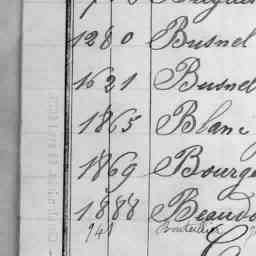 1280 Busnel
1621 Busnel
1865 Blanc
1869 Bourg
1888 Beaudo
941 Bouteiller